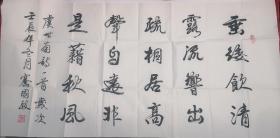 垂緌飲清
露流響出
疏桐居高
聲自遠非
是藉秋風
虞世南詩一首歲次
壬辰年冬月